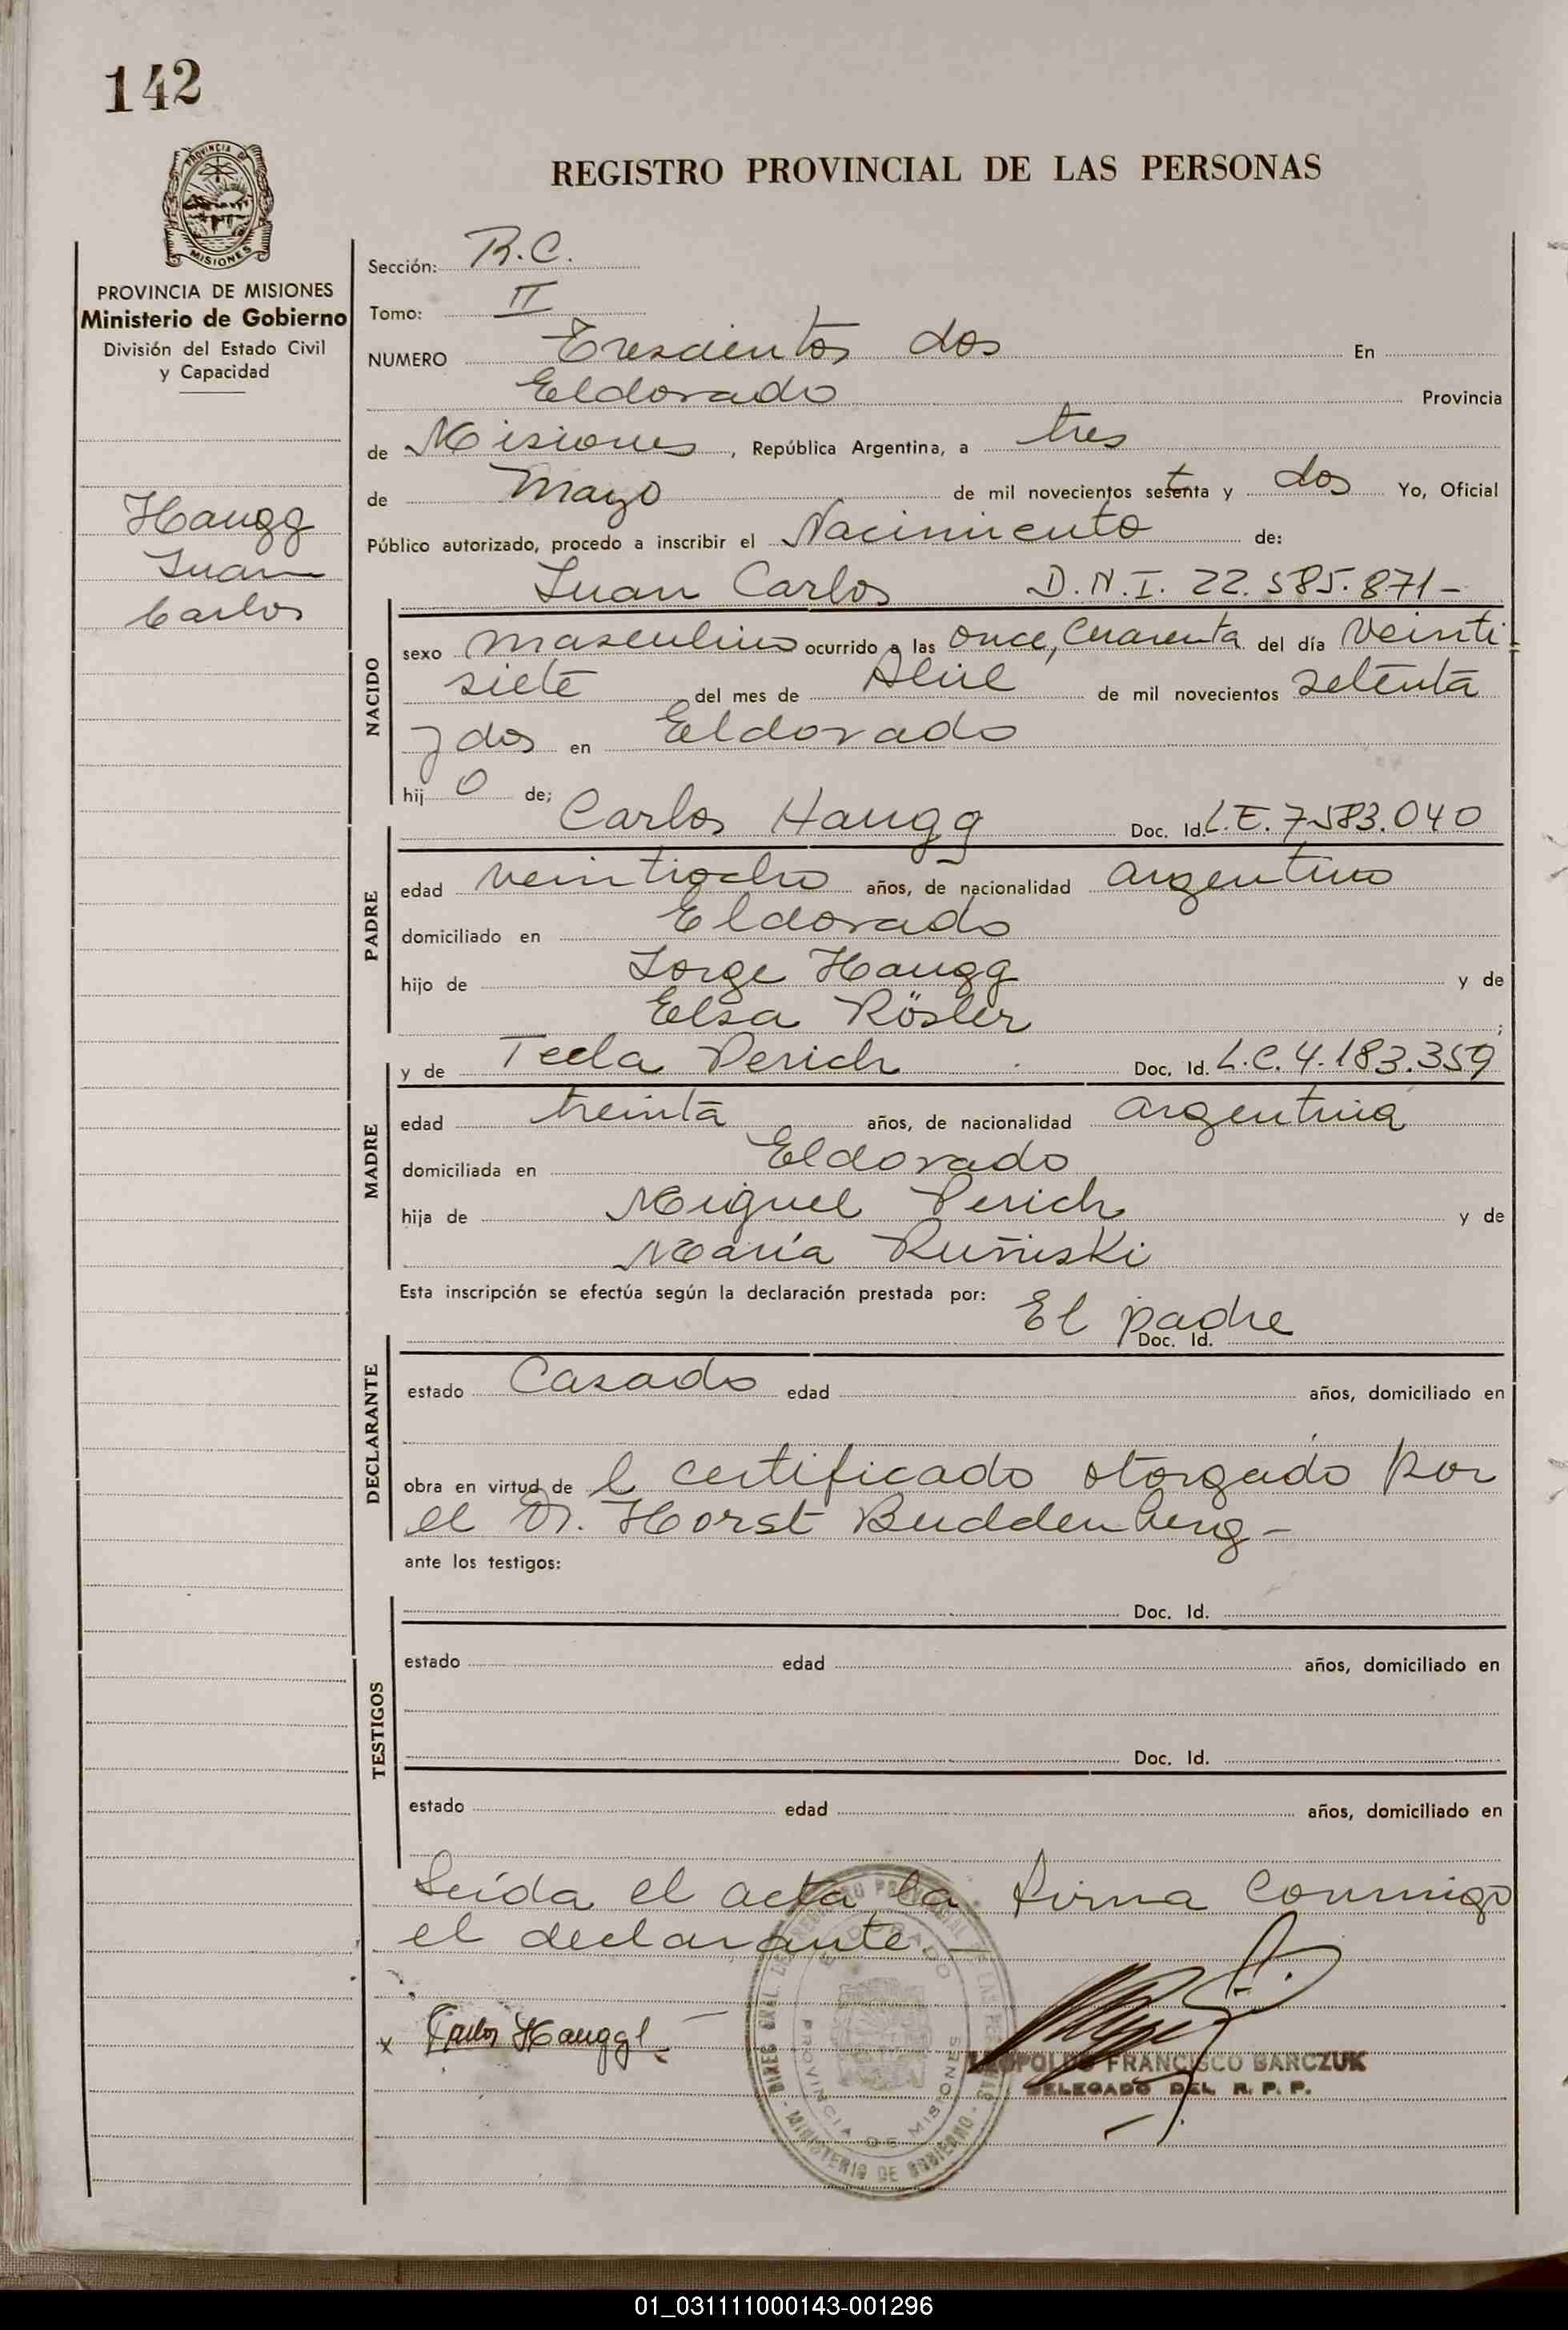 142
REGISTRO PROVINCIAL DE LAS PERSONAS
PROVINCIA DE
MISIONES
PROVINCIA DE MISIONES
Ministerio de Gobierno
División del Estado Civil
y Capacidad
Haugg
Juan
Carlos
Sección: R.C.
Tomo: II
NUMERO Trescientos dos En
Eldorado Provincia
de Misiones, República Argentina, a tres
de Mayo de mil novecientos setenta y dos Yo, Oficial
Público autorizado, procedo a inscribir el Nacimiento de:
Juan Carlos D.N.I. 22.585.871-
NACIDO
sexo masculino ocurrido a las once, cuarenta del día veinti=
siete del mes de Abril de mil novecientos setenta
y dos en Eldorado
hij o de;
Carlos Haugg Doc. Id. L.E. 7583.040
PADRE
edad veintiocho años, de nacionalidad argentino
domiciliado en Eldorado
hijo de Jorge Haugg y de
Elsa Rösler ;
y de Tecla Perich Doc. Id. L.C. 4.183.359
MADRE
edad treinta años, de nacionalidad argentina
domiciliada en Eldorado
hija de Miguel Perich y de
María Ruñiski
Esta inscripción se efectúa según la declaración prestada por: El padre
Doc. Id.
DECLARANTE
estado Casado edad años, domiciliado en
obra en virtud de l certificado otorgado por
el Dr. Horst Buddenberg -
ante los testigos:
Doc. Id.
TESTIGOS
estado edad años, domiciliado en
Doc. Id.
estado edad años, domiciliado en
Leída el acta, la firma conmigo
el declarante. -
x Carlos Haugg
DIREC. GRAL. DEL REGISTRO PROVINCIAL DE LAS PERSONAS
ELDORADO
PROVINCIA DE MISIONES
- MINISTERIO DE GOBIERNO -
LEOPOLDO FRANCISCO BARCZUK
DELEGADO DEL R. P. P.
01_031111000143-001296